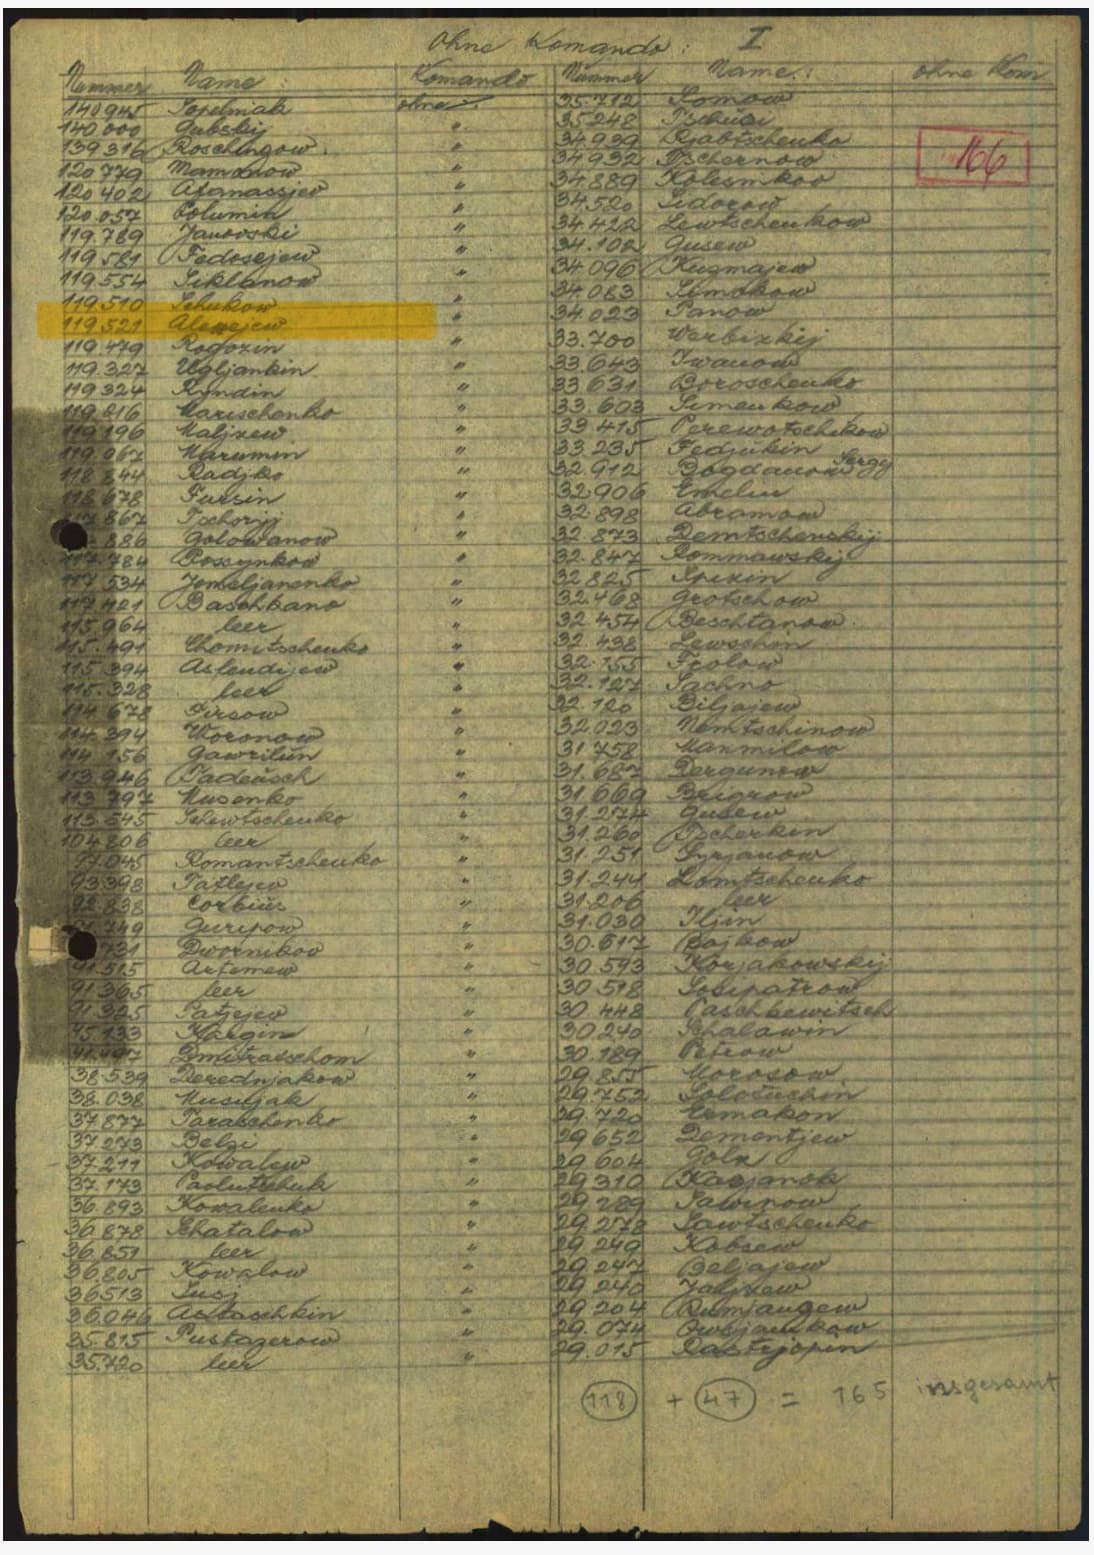 Ohne Komando: I
Nummer Name: Komando Nummer Name: ohne Kom
140945 ohne 35.712 Somow
140000 Gubskij " 35248
139316 Roschingow. " 34939 Rjabtschenko
120779 Mamonow " 34932 Tschernow
166
120402 Afanassjew " 34889 Kolesnikow
120057 Polumin " 34520 Sidorow
119.789 Janovski " 34.422 Lewtschenkow
119581 Fedosejew " 34.102 Gusew
119554 Siklanow " 34096 Kusmajew
119510 Schukow " 34.083 Simakow
119521 Alexejew " 34023 Panow
119479 Rogozin " 33.700 Werbizkij
119.327 Ugljankin " 33643 Iwanow
119324 Ryndin " 33631 Boroschenko
119216 Marischenko " 33.603 Simenkow
119196 Maljzew " 33415 Perewotschikow
119.067 " 33.235 Fedjukin
118844 Radjko " 32912 Bogdanow Sergy
118678 Fursin " 32906 Emelin
867 Tschoryj " 32.898 Abramow
886 Golowanow " 32.873 Demtschenskij
117.784 Possynkow " 32.847 Rommawskij
117534 Jemeljanenko " 32.825 Spizin
117421 Baschkano " 32468 Grotschow
115964 leer " 32454 Beschtanow
115.491 Chomitschenko " 32438 Lewschin
115.394 " 32.155
115.328 leer " 32.127 Sachno
114678 Firsow " 32.120 Biljajew
114394 Woronow " 32023 Nemtschinow
114156 Gawrilün " 31758 Manmilow
113.946 Padeüsch " 31.687 Dergunow
113797 Musenko " 31669
113545 Schewtschenko " 31.274 Gusew
104806 leer " 31.260 Tscherkin
97045 Romantschenko " 31.251 Syrjanow
93398 " 31.244 Lomtschenko
92838 Corbüs " 31.206 leer
249 Guripow " 31.030 Iljin
731 Dwornikow " 30.617 Bojkow
91515 Artemew " 30593 Korjakowskij
91365 leer " 30518 Sosipatrow
91325 " 30448 Paschkewitsch
45133 Kürgin " 30240 Schalawin
Dmitraschom " 30.189 Petrow
38539 Derednjakow " 29.855 Morosow
38.038 Musujak " 29752 Solotuchin
37877 Taraschenko " 29.720 Ermakow
37273 Belgi " 29652 Dementjew
37.211 Kowalew " 29604
37.173 Pavlutschuk " 29310 Kasjanok
36.893 Kowalenko " 29289 Sawinow
36.878 Schatalow " 29.278 Sawtschenko
36.851 leer " 29.249 Kobsew
36.805 Kowalow " 29247 Beljajew
36513 Susj " 29.240 Jaljzew
36046 Astaschkin " 29204 Rumjanzew
35.815 Pustagerow " 29.074 Owsjanikow
35.720 leer " 29.015
118 + 47 = 165 insgesamt